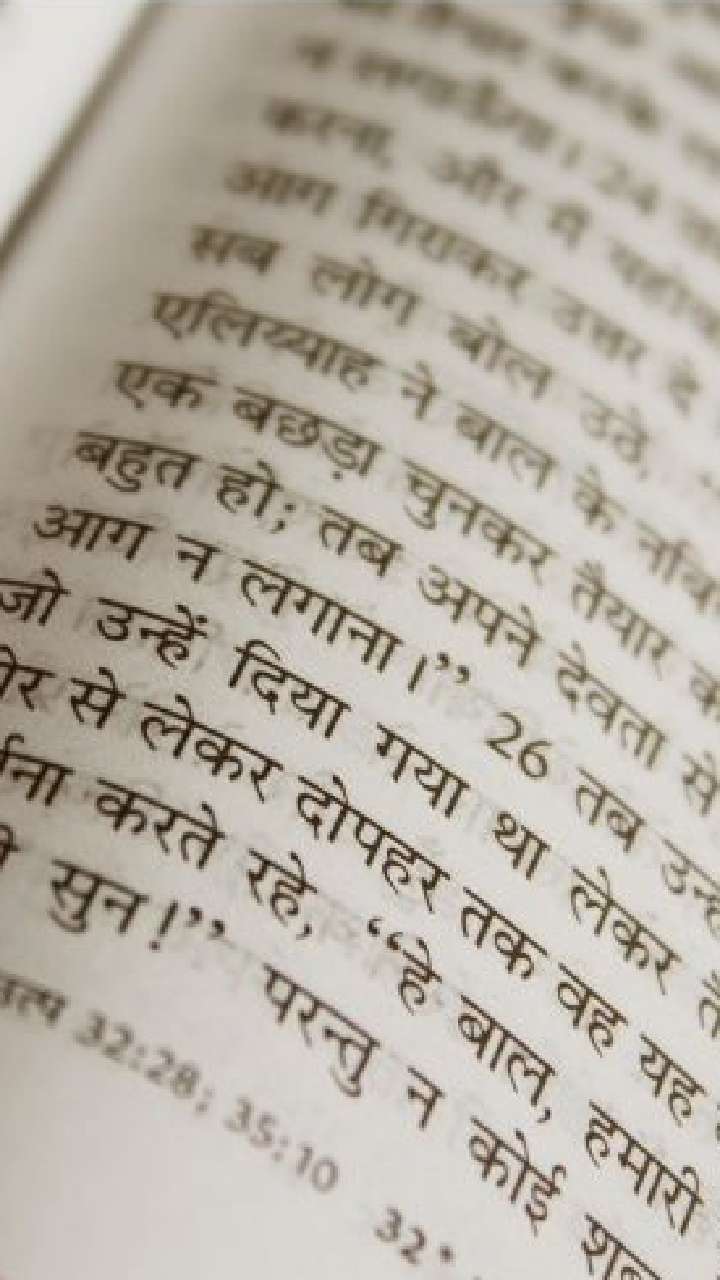 न लगाऊँगा। 24
करना, और मैं
आग गिराकर उत्तर दे
सब लोग बोल उठे,
एलिय्याह ने बाल के
एक बछड़ा चुनकर तैयार
बहुत हो; तब अपने देवता से
आग न लगाना।” 26 तब
जो उन्हें दिया गया था लेकर
से लेकर दोपहर तक वह यह
करते रहे, “हे बाल, हमारी
सुन!” परन्तु न कोई
32:28; 35:10 32*